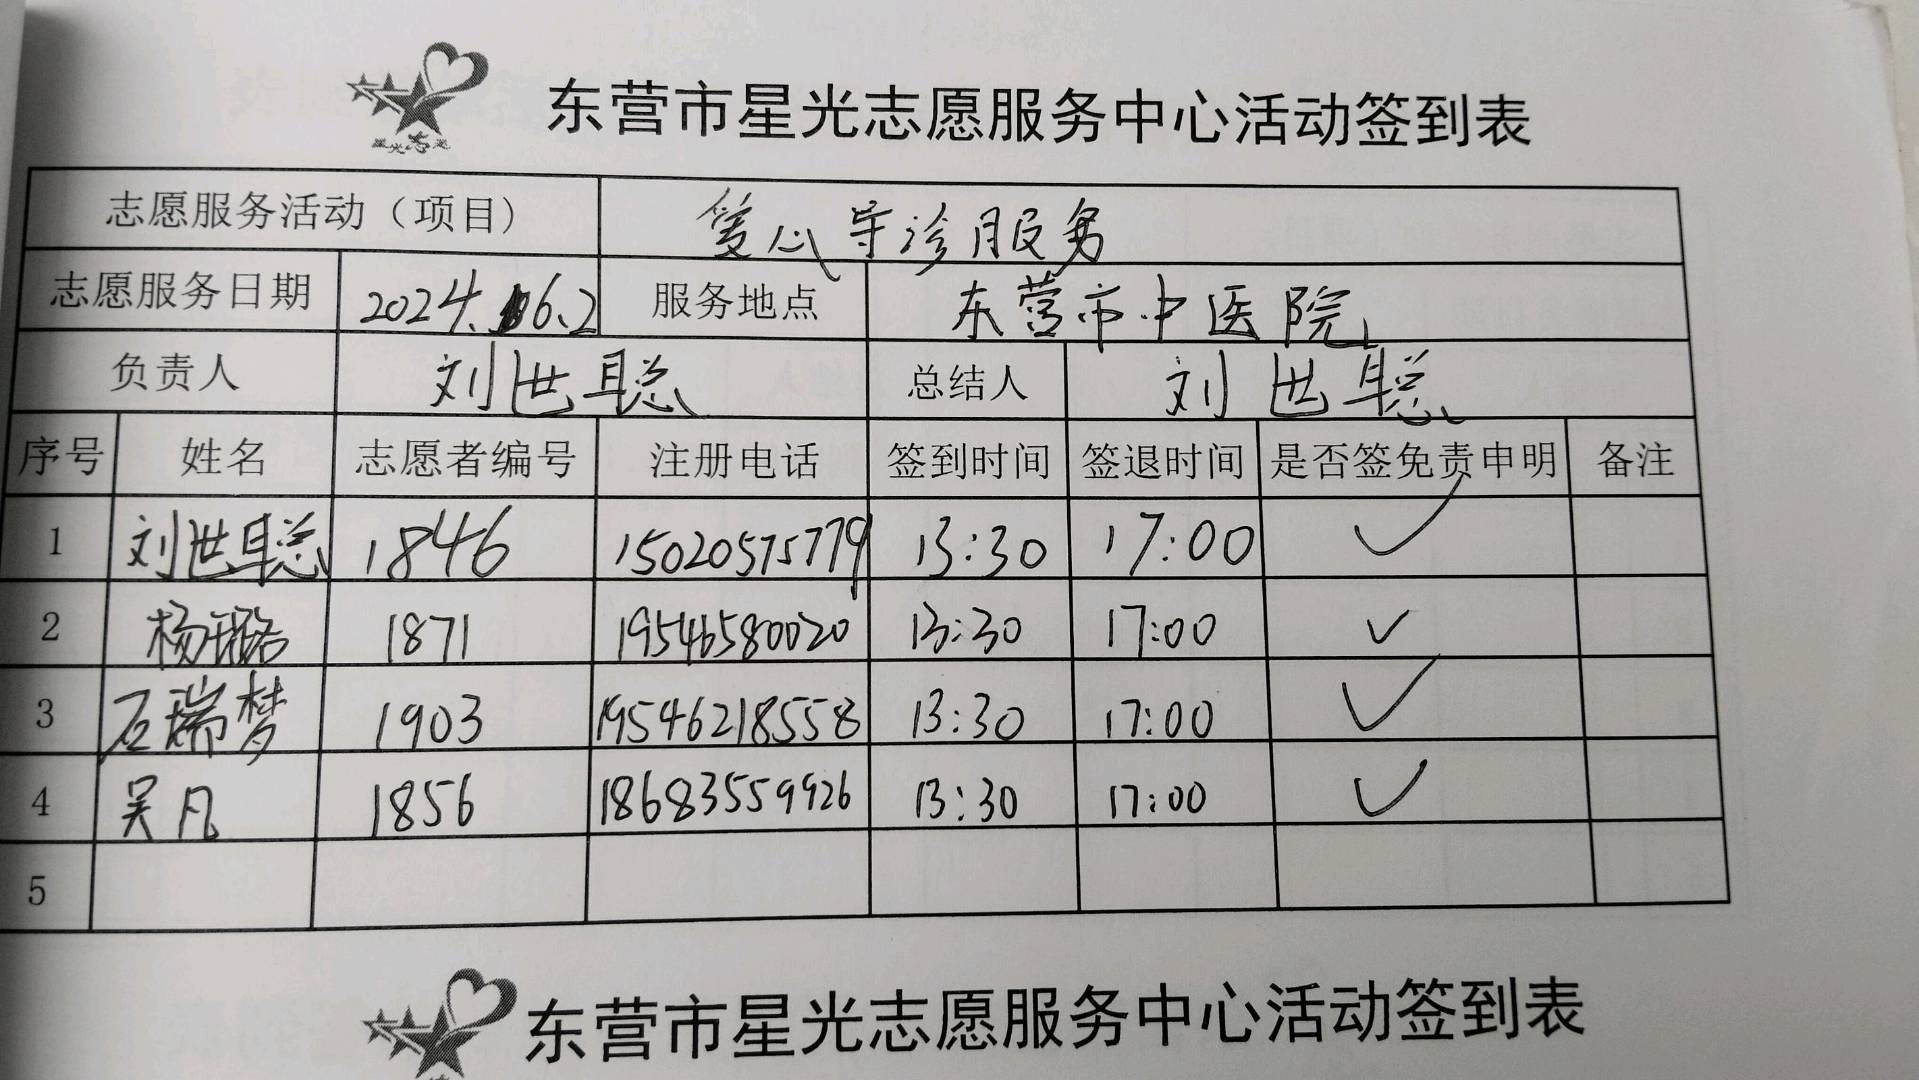 东营市星光志愿服务中心活动签到表
星光志愿
志愿服务活动（项目） 爱心导诊服务
志愿服务日期 2024.6.2 服务地点 东营市中医院
负责人 刘世聪 总结人 刘世聪
序号 姓名 志愿者编号 注册电话 签到时间 签退时间 是否签免责申明 备注
1 刘世聪 1846 15020575779 13:30 17:00 ✓
2 杨璐 1871 19546580020 13:30 17:00 ✓
3 石瑞梦 1903 19546218558 13:30 17:00 ✓
4 吴凡 1856 18683559926 13:30 17:00 ✓
5
东营市星光志愿服务中心活动签到表